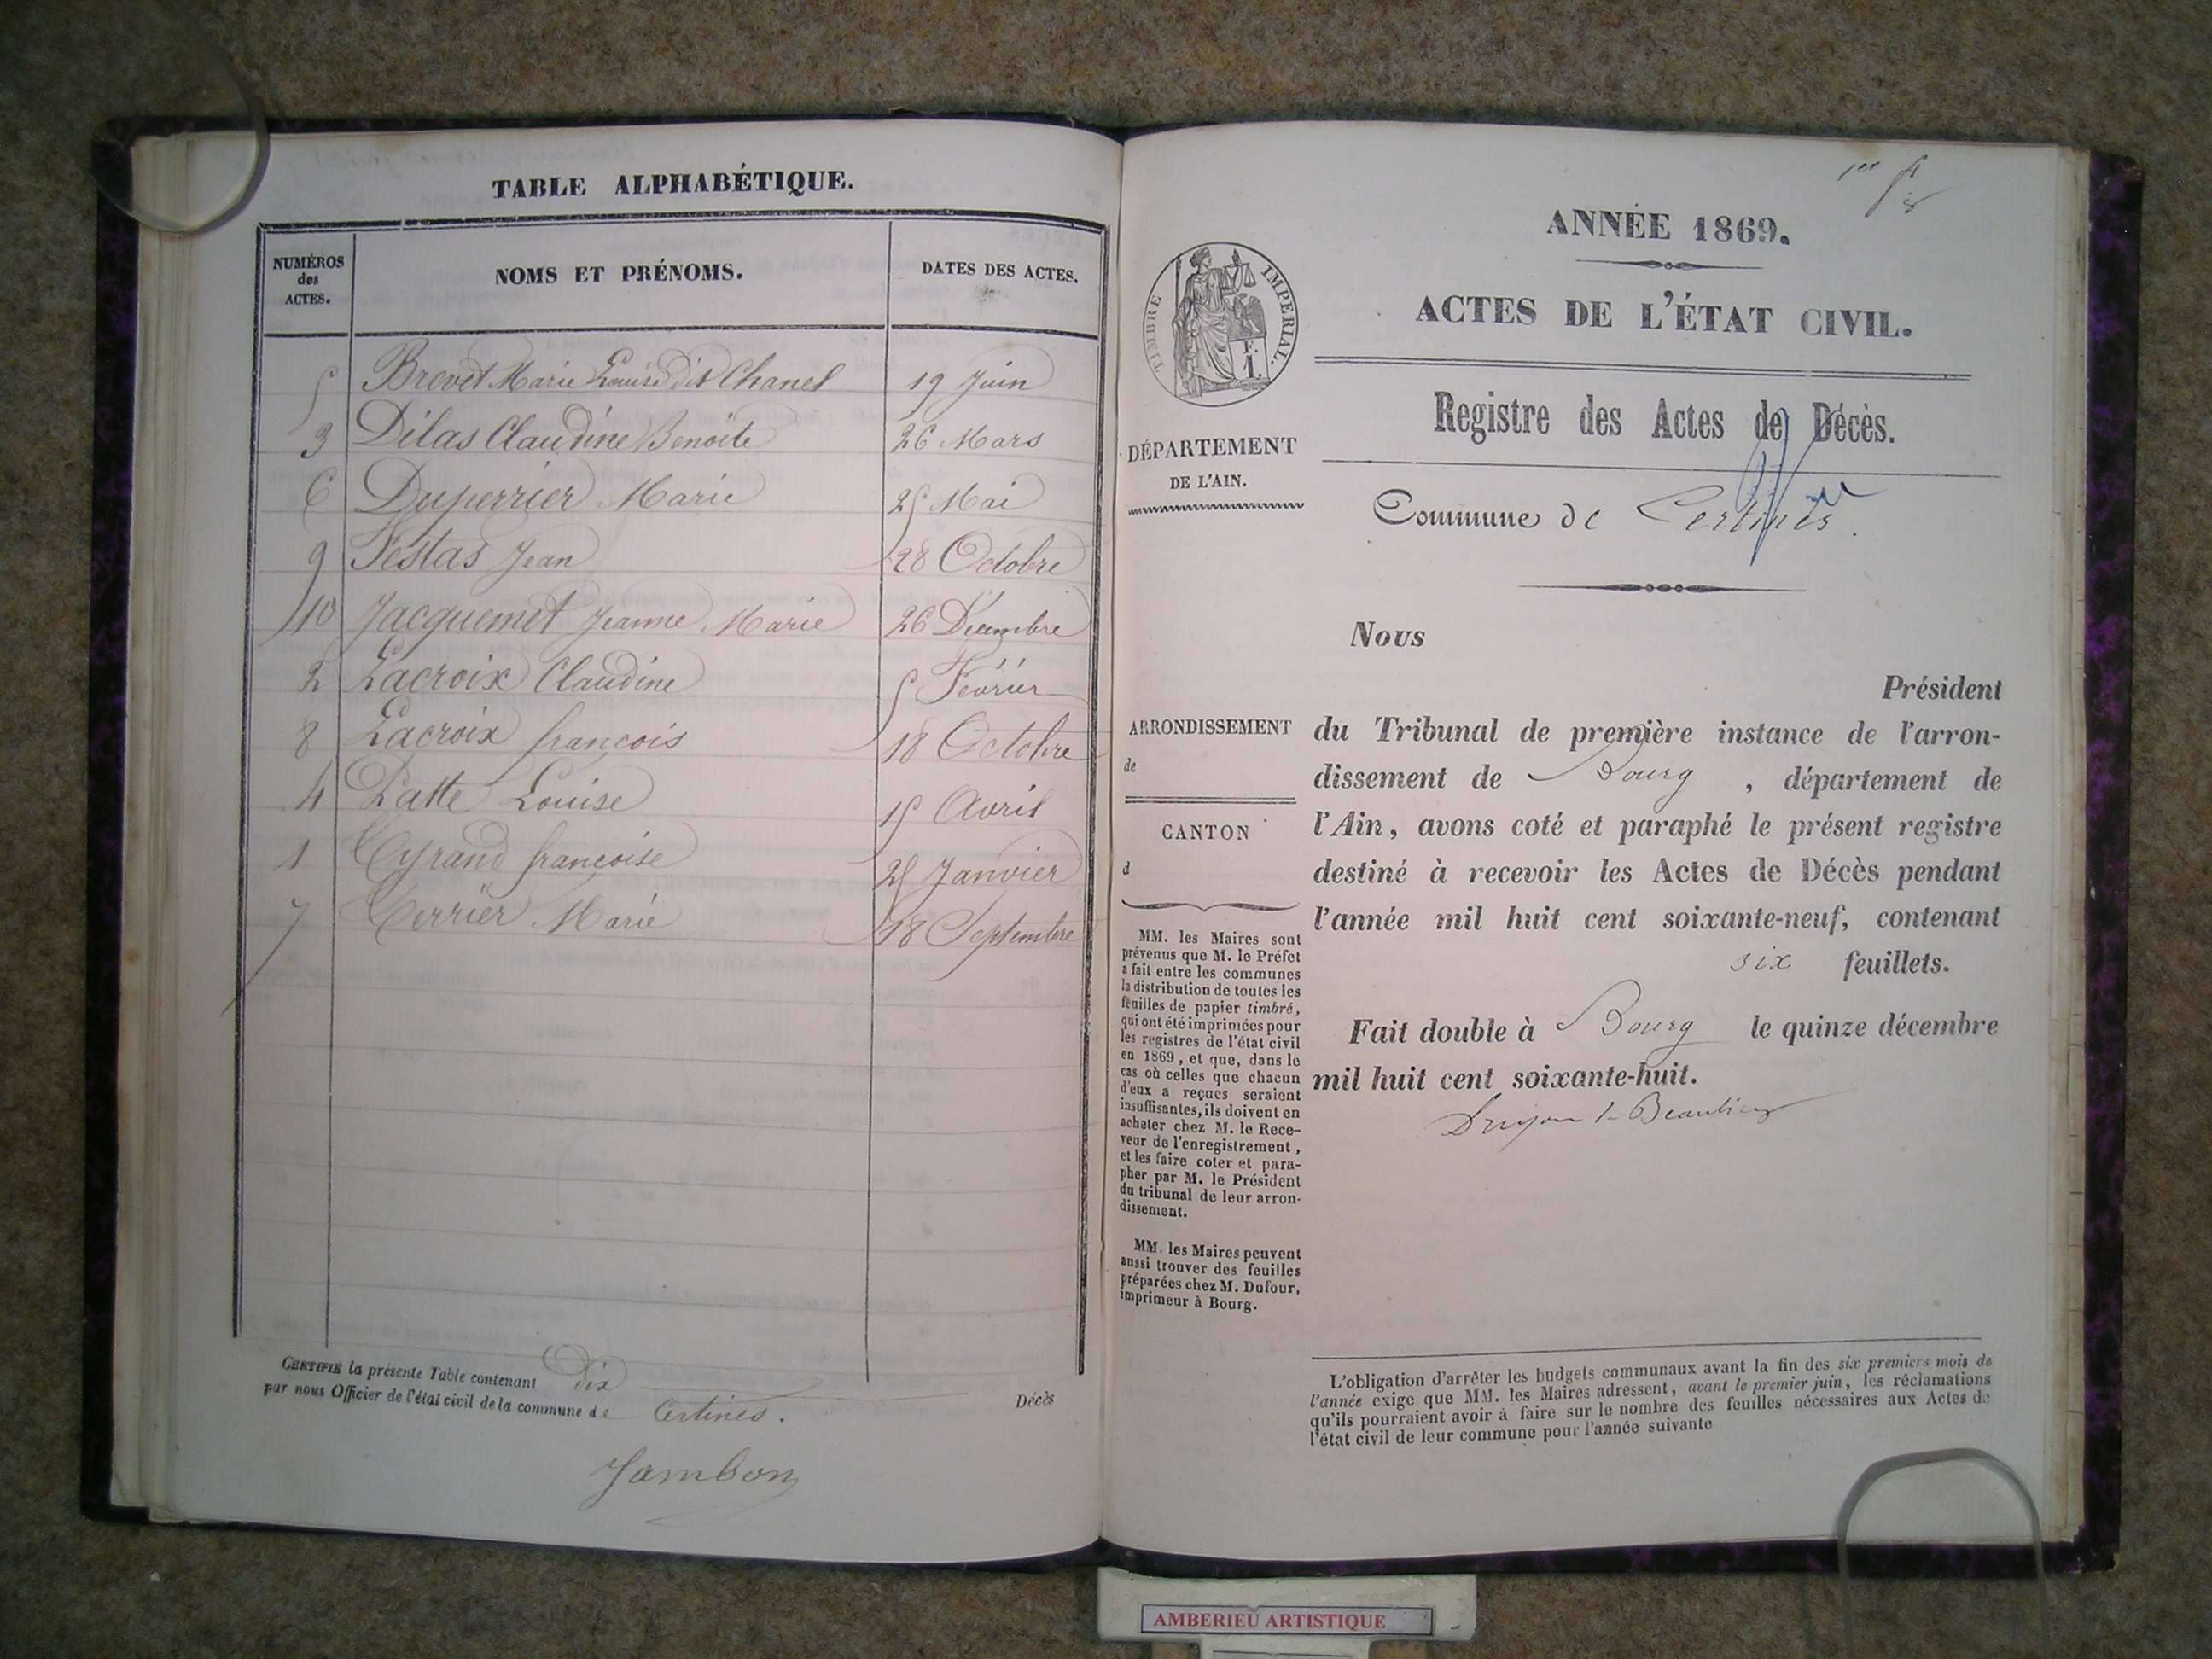 TABLE ALPHABÉTIQUE.
NUMÉROS
des
ACTES.
NOMS ET PRÉNOMS.
DATES DES ACTES.
5 Brevet Marie Louise dit Chanel 19 Juin
3 Dilas Claudine Benoite 26 Mars
6 Duperrier Marie 25 Mai
9 Festas Jean 28 Octobre
10 Jacquemet Jeanne Marie 26 Décembre
2 Lacroix Claudine 5 Février
8 Lacroix françois 18 Octobre
4 Latte Louise 15 Avril
1 françoise 25 Janvier
7 Marie 18 Septembre
CERTIFIÉ la présente Table contenant dix Décès
par nous Officier de l'état civil de la commune de Certines.
Jambon
1er
ANNÉE 1869.
ACTES DE L'ÉTAT CIVIL.
TIMBRE IMPÉRIAL.
F.
1.
Registre des Actes de Décès.
DÉPARTEMENT
DE L'AIN.
Commune de Certines.
Nous
Président
ARRONDISSEMENT
de
CANTON
d
du Tribunal de première instance de l'arron-
dissement de Bourg, département de
l'Ain, avons coté et paraphé le présent registre
destiné à recevoir les Actes de Décès pendant
l'année mil huit cent soixante-neuf, contenant
six feuillets.
Fait double à Bourg le quinze décembre
mil huit cent soixante-huit.
MM. les Maires sont
prévenus que M. le Préfet
a fait entre les communes
la distribution de toutes les
feuilles de papier timbré,
qui ont été imprimées pour
les registres de l'état civil
en 1869, et que, dans le
cas où celles que chacun
d'eux a reçues seraient
insuffisantes, ils doivent en
acheter chez M. le Rece-
veur de l'enregistrement,
et les faire coter et para-
pher par M. le Président
du tribunal de leur arron-
dissement.
MM. les Maires peuvent
aussi trouver des feuilles
préparées chez M. Dufour,
imprimeur à Bourg.
L'obligation d'arrêter les budgets communaux avant la fin des six premiers mois de
l'année exige que MM. les Maires adressent, avant le premier juin, les réclamations
qu'ils pourraient avoir à faire sur le nombre des feuilles nécessaires aux Actes de
l'état civil de leur commune pour l'année suivante
AMBERIEU ARTISTIQUE